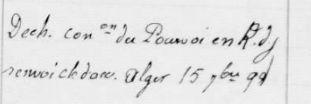 Dech. con on du Pourvoi en R. dj
renvoi ch d'acc. Alger 15 7bre 99